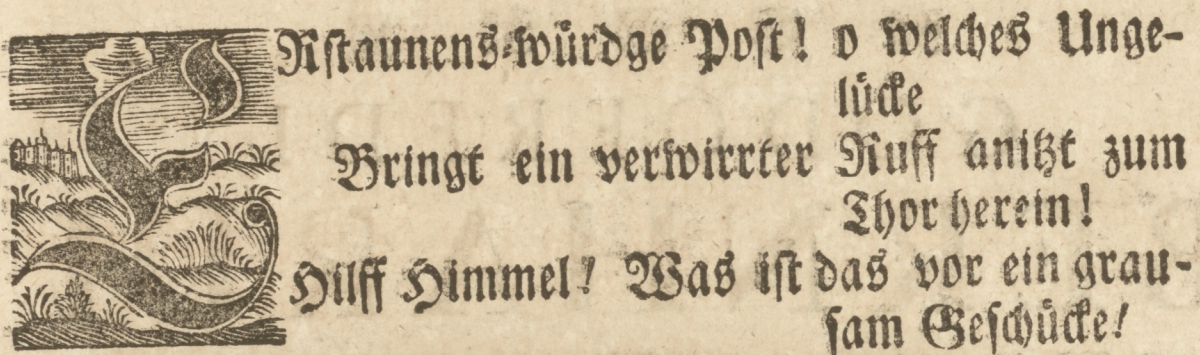 ERſtaunens-würdge Poſt! o welches Unge-
lücke
Bringt ein verwirrter Ruff anitzt zum
Thor herein!
Hilff Himmel! Was iſt das vor ein grau-
ſam Geſchücke!